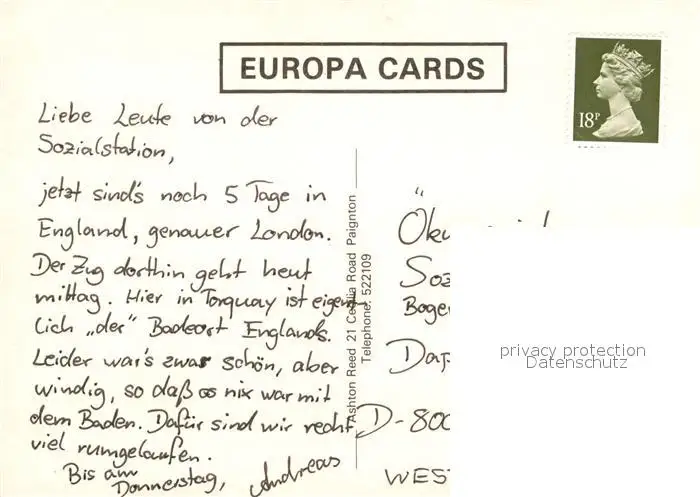 EUROPA CARDS
18P
Liebe Leute von der
Sozialstation,
jetzt sind's noch 5 Tage in
England, genauer London.
Der Zug dorthin geht heut
mittag. Hier in Torquay ist eigent-
lich „der" Badeort Englands.
Leider war's zwar schön, aber
windig, so daß es nix war mit
dem Baden. Dafür sind wir recht
viel rumgelaufen.
Bis am
Donnerstag, Andreas
Ashton Reed 21 Cecilia Road Paignton
Telephone: 522109
Öku
Soz
Boge
D-800
WEST
privacy protection
Datenschutz